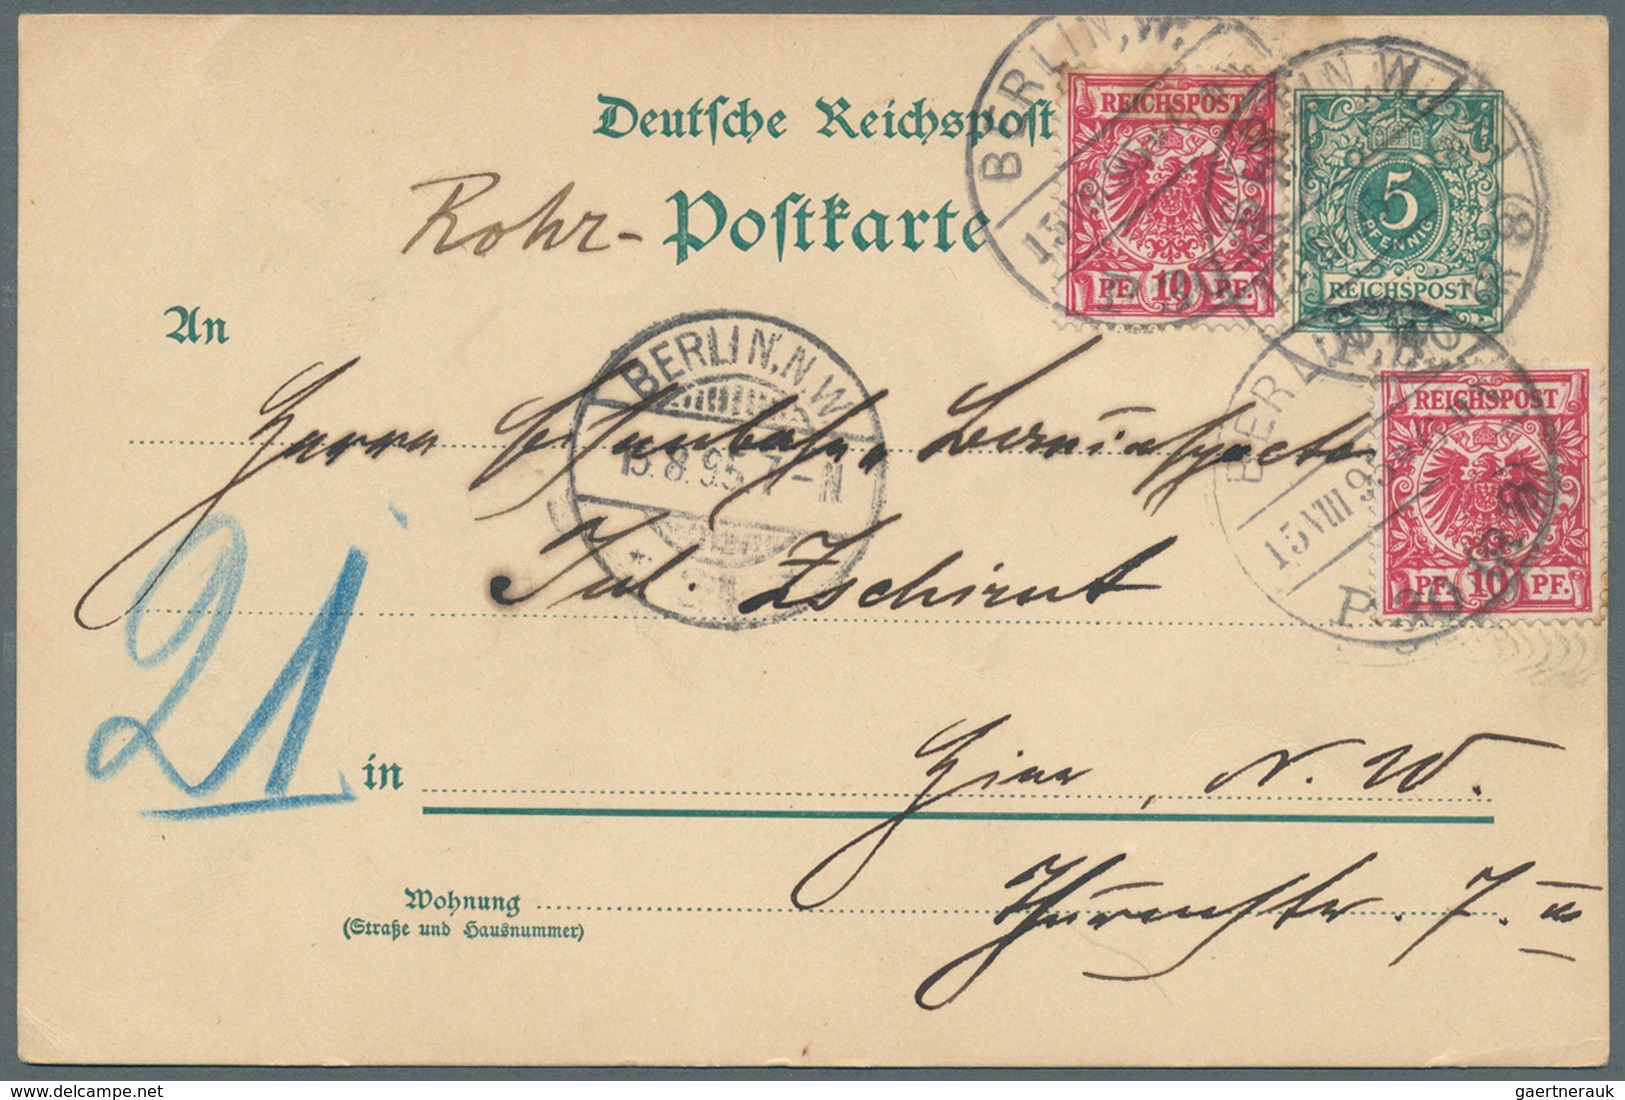 Deutsche Reichspost
Rohr- Postkarte
BERLIN, W.
REICHSPOST
PF. 10 PF.
5
PFENNIG
REICHSPOST
An
BERLIN, N.W.
15.8.95.7-N
Herrn Eisenbahn
REICHSPOST
PF. 10 PF.
15 VIII 95
P 30
Jul. Zschirnt
21
in Hier, N. W.
Wohnung
(Straße und Hausnummer)
Thurmstr. 7. III
delcampe.net
gaertnerauk